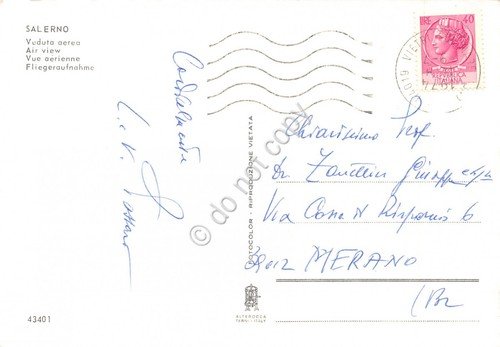 SALERNO
Veduta aerea
Air view
Vue aerienne
Fliegeraufnahme
Cordialmente
LIRE 40
REPUBBLICA
ITALIANA
Chiarissimo Prof.
Dr. Giuseppe
Via
39012 MERANO
(BZ
FOTOCOLOR - RIPRODUZIONE VIETATA
do not copy
ALTEROCCA
TERNI-ITALY
43401